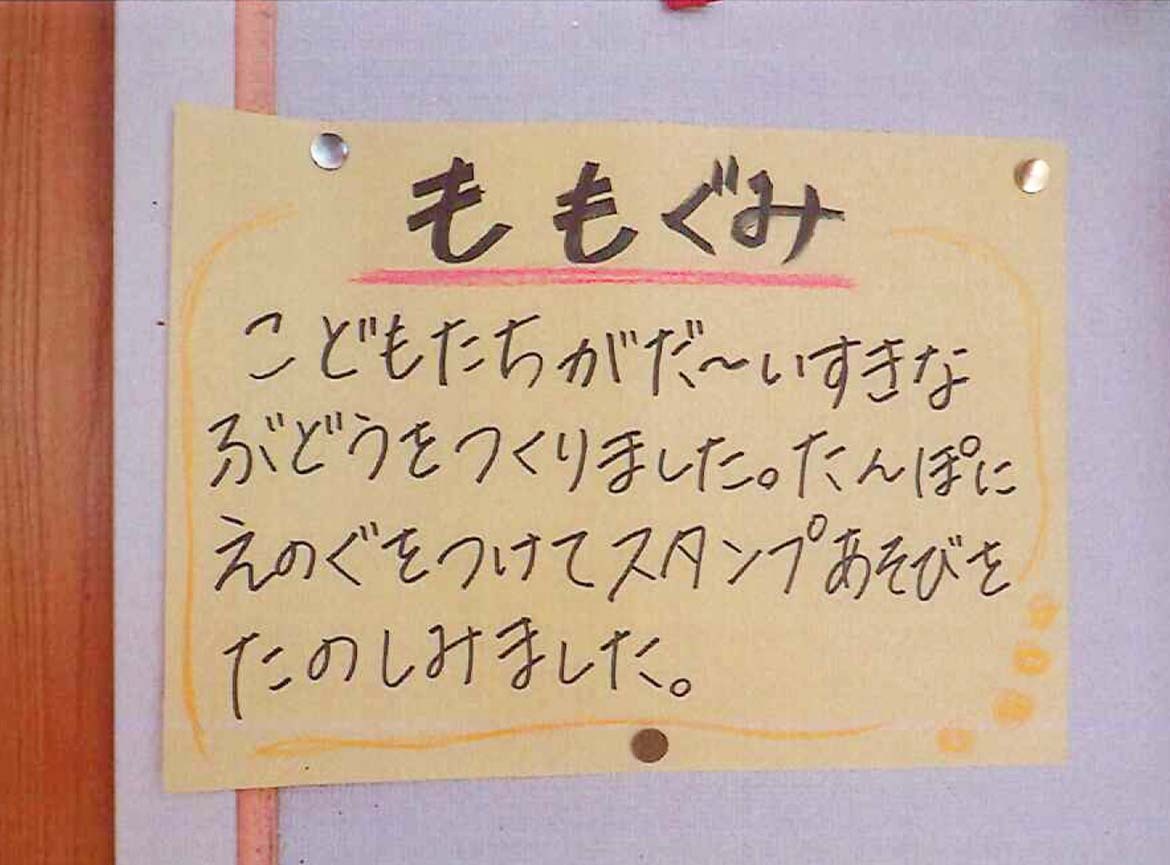 ももぐみ
こどもたちがだ〜いすきな
ぶどうをつくりました。たんぽに
えのぐをつけてスタンプあそびを
たのしみました。